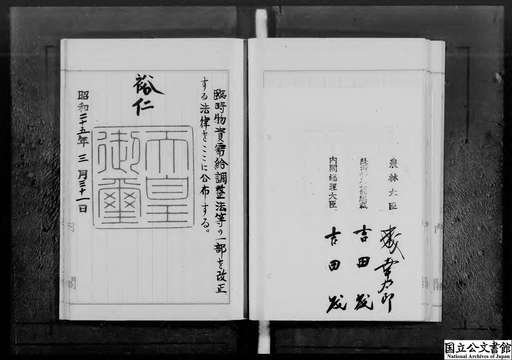 臨時物資需給調整法等の一部を改正
する法律をここに公布する。
裕仁
天皇
御璽
昭和二十五年三月三十一日
内閣総理大臣 吉田茂
吉田茂
農林大臣
国立公文書館
National Archives of Japan